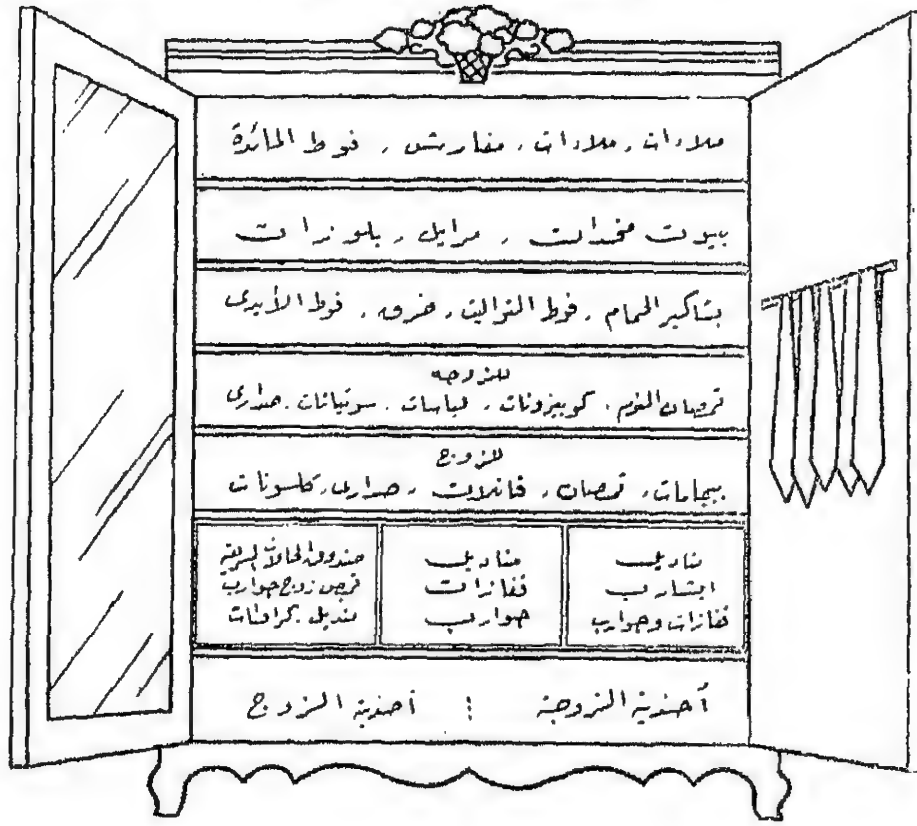 ملاءات ، ملاءات ، مفارش ، فوط المائدة
بيوت مخدات ، مرايل ، بلوزات
بشاكير الحمام ، فوط التواليت ، خرق ، فوط الأيدى
للزوجه
قمصان النوم ، كومبيزونات ، لباسات ، سوتيانات ، صدارى
للزوج
بيجامات ، قمصان ، فانلات ، صدارى ، كلسونات
مناديل
ايشارب
قفازات وجوارب
مناديل
قفازات
جوارب
صندوق الحالات السريعة
قميص زوج جوارب
منديل كرافتات
أحذية الزوجة ⁝ أحذية الزوج